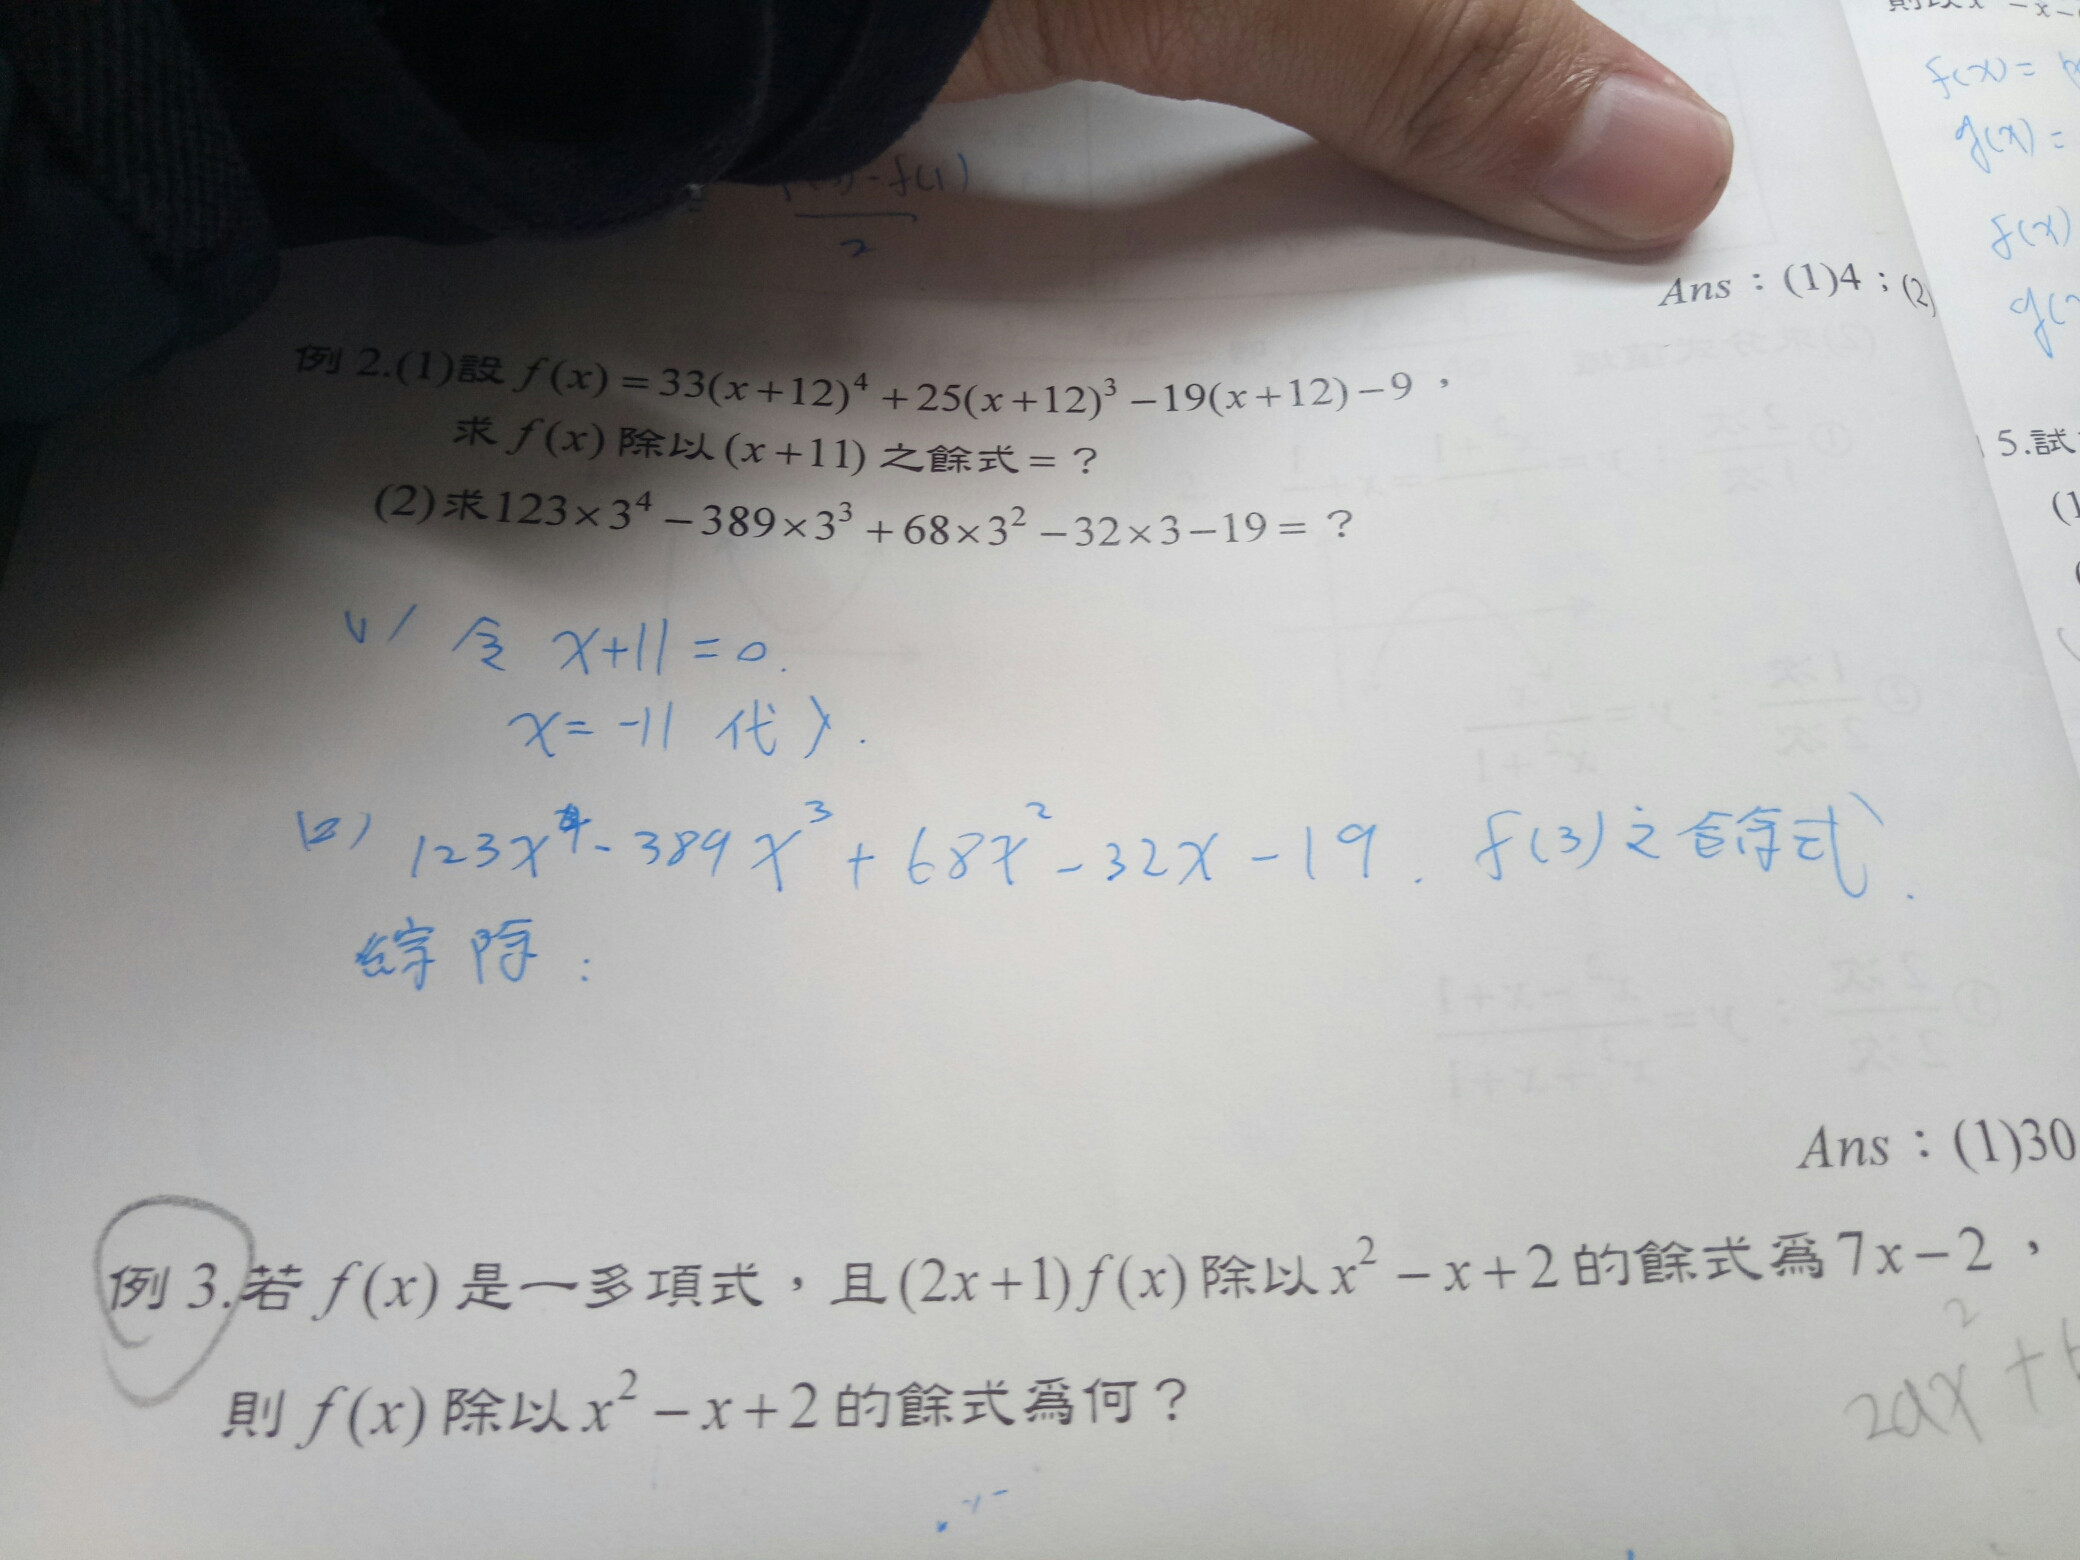 f(1)
2
Ans：(1)4；(2)
例 2.(1)設 f(x)=33(x+12)⁴+25(x+12)³−19(x+12)−9，
求 f(x) 除以 (x+11) 之餘式=？
(2)求123×3⁴−389×3³+68×3²−32×3−19=？
(1) 令 x+11=0.
x=-11 代入.
(2) 123x⁴-389x³+68x²-32x-19. f(3)之餘式.
綜除：
Ans：(1)30
例 3.若 f(x) 是一多項式，且(2x+1)f(x)除以x²−x+2的餘式為7x−2，
則 f(x) 除以 x²−x+2 的餘式為何？
2ax²+
f(x)=
g(x)=
f(x)
5.試